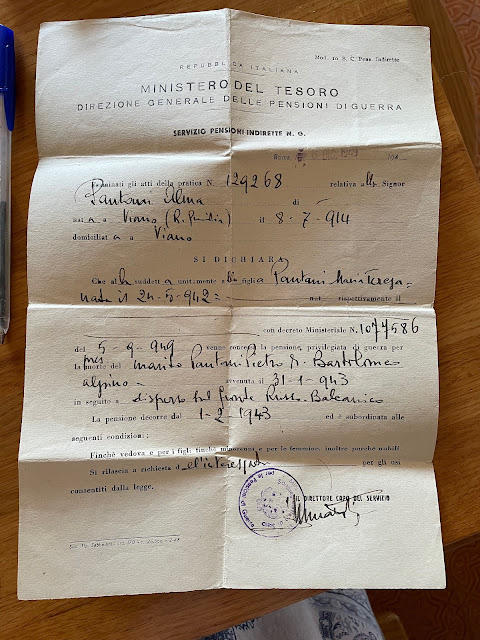 Mod. 10 B. C. Pens. Indirette
REPUBBLICA ITALIANA
MINISTERO DEL TESORO
DIREZIONE GENERALE DELLE PENSIONI DI GUERRA
SERVIZIO PENSIONI INDIRETTE N. G.
Roma,
Esaminati gli atti della pratica N. 129268 relativa alla Signor
Pantani Elma di
nata a Viano (R. Emilia) il 8-7-914
domiciliata a Viano
SI DICHIARA
Che alla suddetta unitamente alla figlia Pantani Maria Teresa
nata il 24-5-942 = nat rispettivamente il
con decreto Ministeriale N. 1077586
del 5-9-949 venne concessa la pensione, privilegiata di guerra per
la morte del marito Pantani Pietro di Bartolomeo
alpino avvenuta il 31-1-943
in seguito a disperso sul fronte Russo-Balcanico
La pensione decorre dal 1-2-1943 ed è subordinata alle
seguenti condizioni:
Finchè vedova e per i figli finchè minorenni e per le femmine, inoltre purchè nubili
Si rilascia a richiesta dell'interessata per gli usi
consentiti dalla legge.
IL DIRETTORE CAPO DEL SERVIZIO